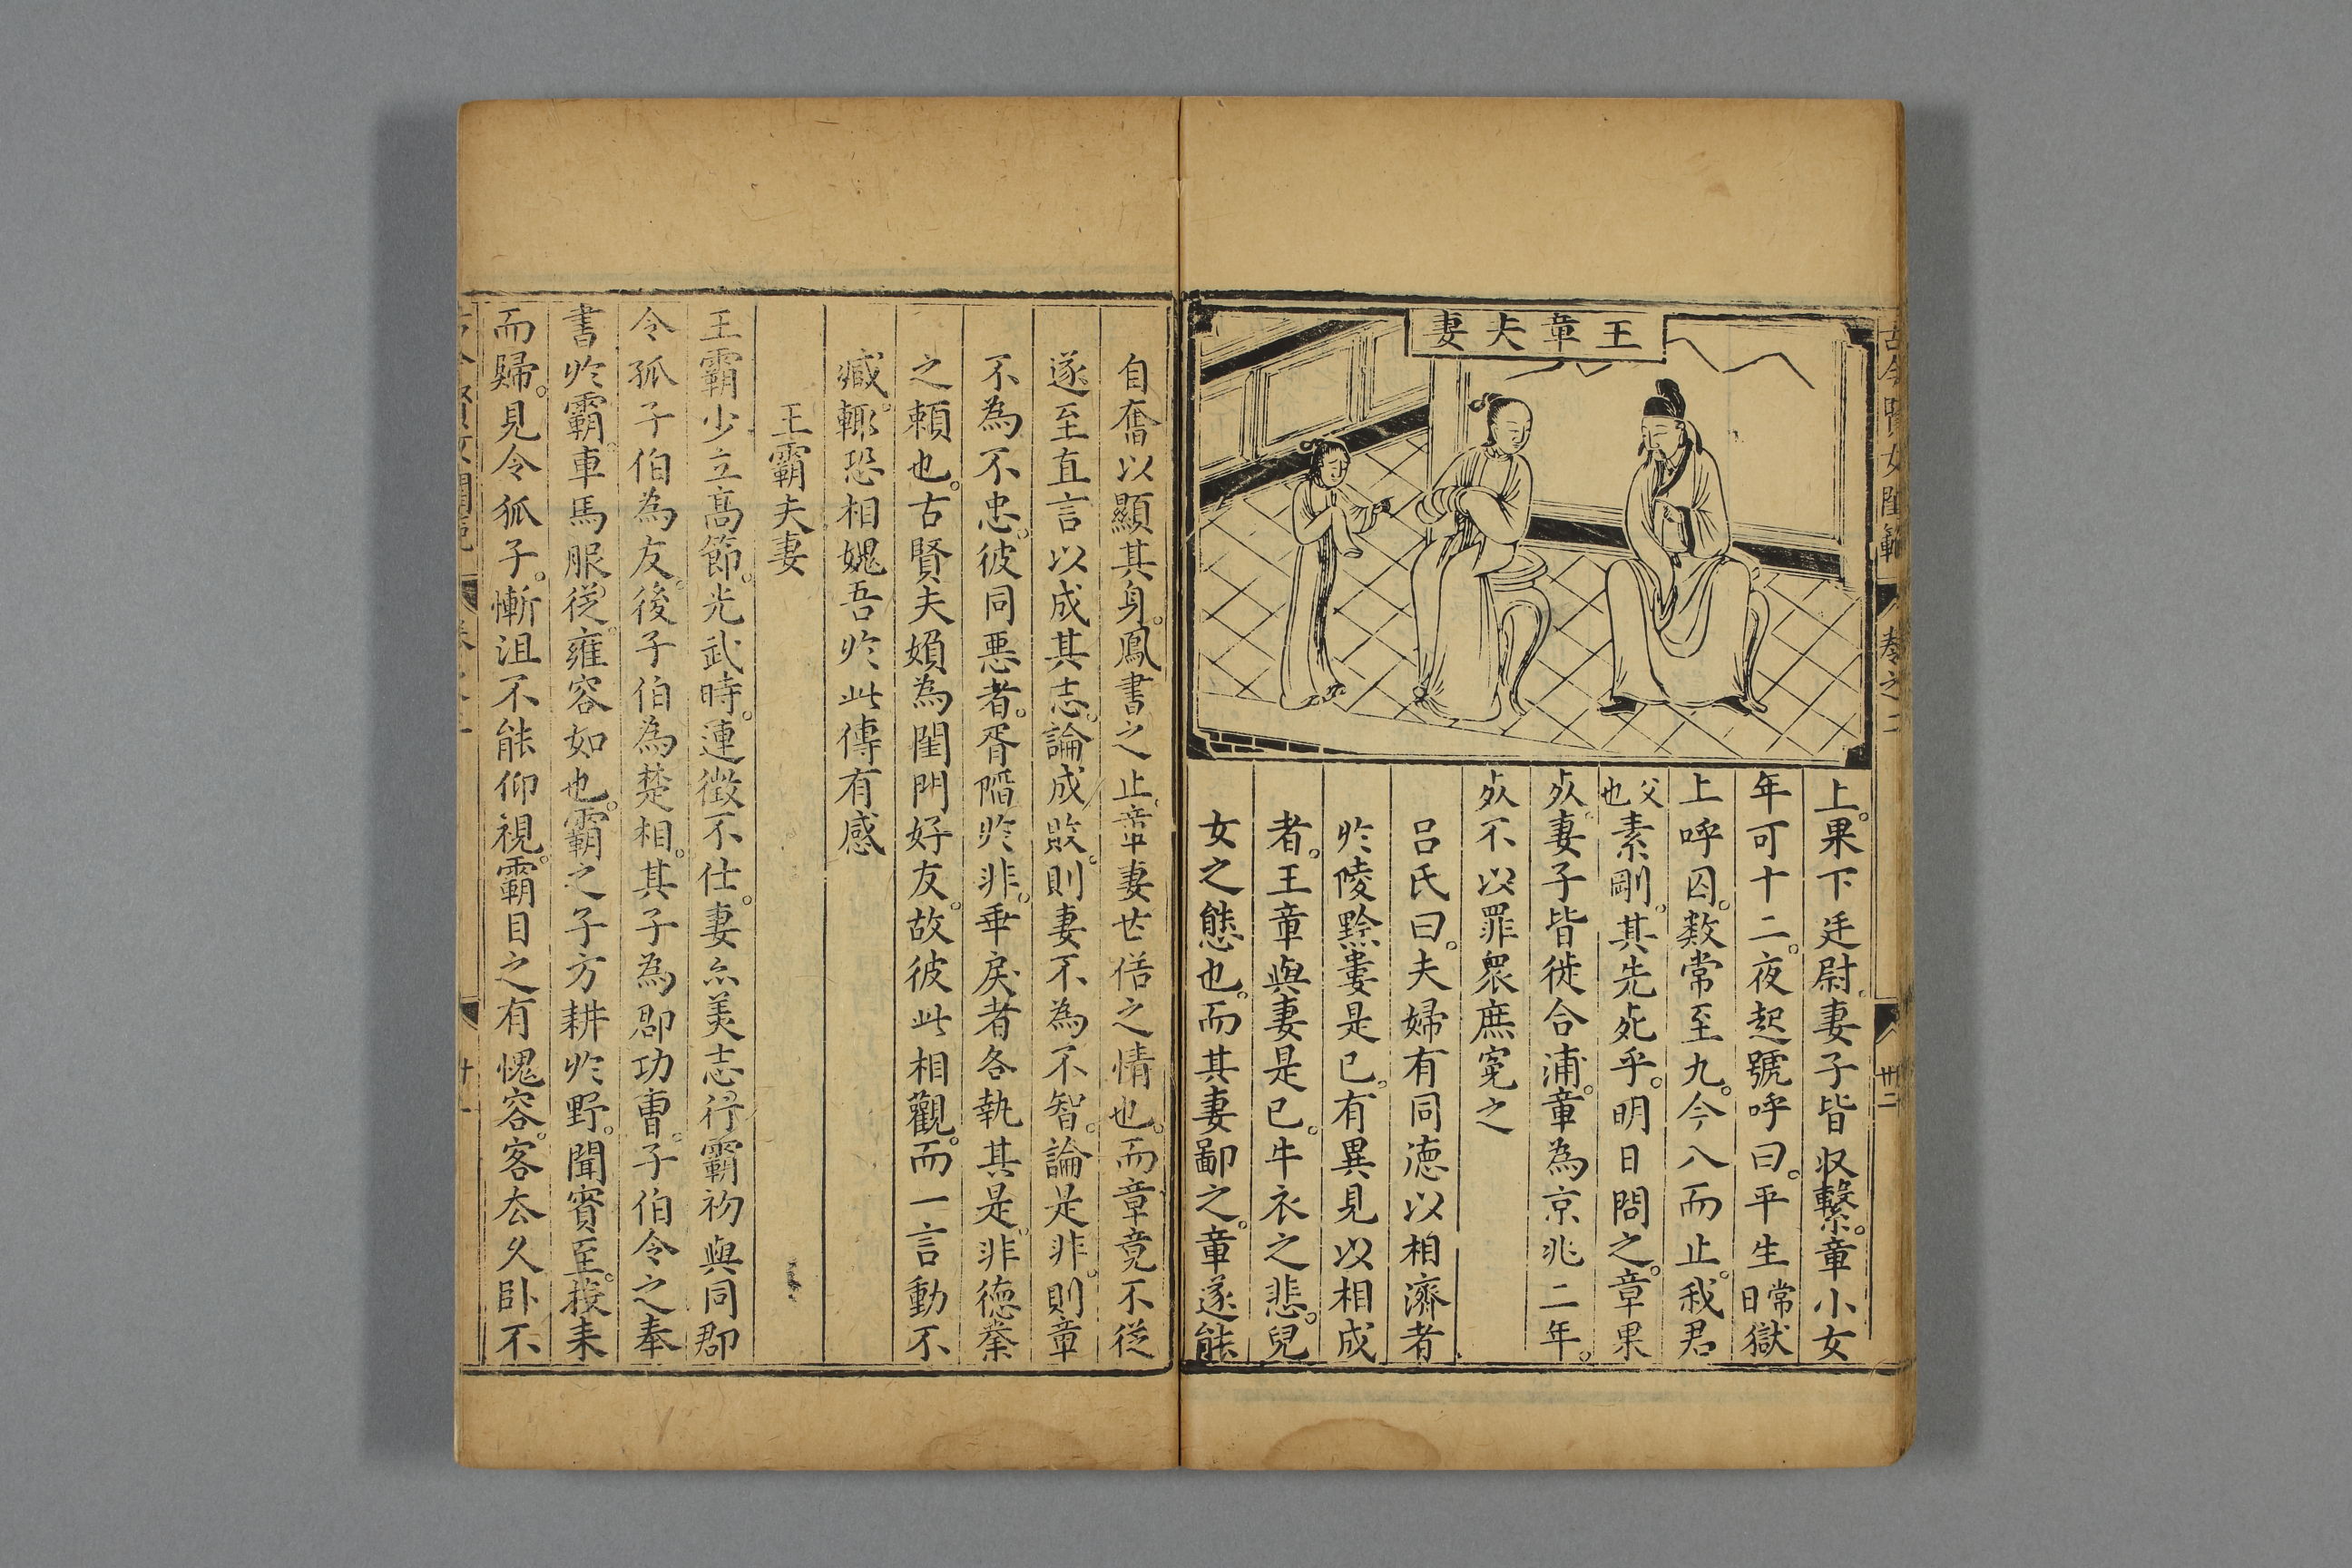 古今賢女閨範
卷之二
卅二
王章夫妻
上。果下廷尉。妻子皆収繫。章小女
年可十二。夜起號呼曰。平生常日獄
上呼囚。数常至九。今八而止。我君
父也素剛。其先死乎。明日問之。章果
死。妻子皆徙合浦。章為京兆二年。
死不以罪衆庶寃之
吕氏曰。夫婦有同徳以相濟者
於陵黔婁是已。有異見以相成
者。王章與妻是已。牛衣之悲。兒
女之態也。而其妻鄙之。章遂能
自奮以顯其身。鳳書之止。章妻世俗之情也。而章竟不從
遂至直言以成其志。論成敗。則妻不為不智。論是非。則章
不為不忠。彼同悪者。胥陷於非。乖戾者各執其是。非徳業
之頼也。古賢夫婦為閨門好友。故彼此相觀。而一言動不
臧。輒恐相媿吾於此傳有感
王霸夫妻
王霸少立髙節。光武時。連徴不仕。妻亦美志行霸初與同郡
令狐子伯為友。後子伯為楚相。其子為郡功曹。子伯令之奉
書於霸。車馬服從。雍容如也。霸之子方耕於野。聞賓至。投耒
而歸。見令狐子。慚沮不能仰視。霸目之有愧容。客去久卧不